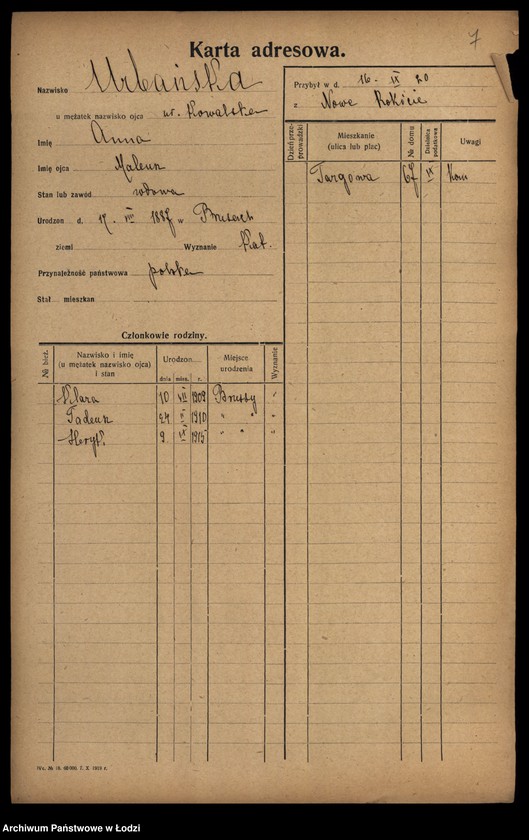 7
Karta adresowa.
Nazwisko Urbańska
u mężatek nazwisko ojca ur. Kowalska
Imię Anna
Imię ojca
Stan lub zawód wdowa
Urodzon d. 17. VIII 1887 w
ziemi Wyznanie Kat.
Przynależność państwowa polska
Stał mieszkan
Przybył w d. 16. IX 20
z Nowe Rokicie
Dzień przeprowadzki
Mieszkanie (ulica lub plac)
№ domu
Dzielnica podatkowa
Uwagi
Targowa 67 IX Kom
Członkowie rodziny.
№ bież.
Nazwisko i imię
(u mężatek nazwisko ojca)
i stan
Urodzon
dnia mies. r.
Miejsce
urodzenia
Wyznanie
Klara 10 1909 "
Tadeusz 24 1910 " " "
Henryk 9 IX 1915 " " "
Archiwum Państwowe w Łodzi